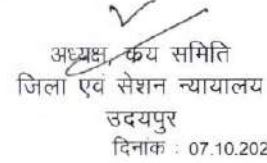 अध्यक्ष, क्रय समिति
जिला एवं सेशन न्यायालय
उदयपुर
दिनांक : 07.10.202